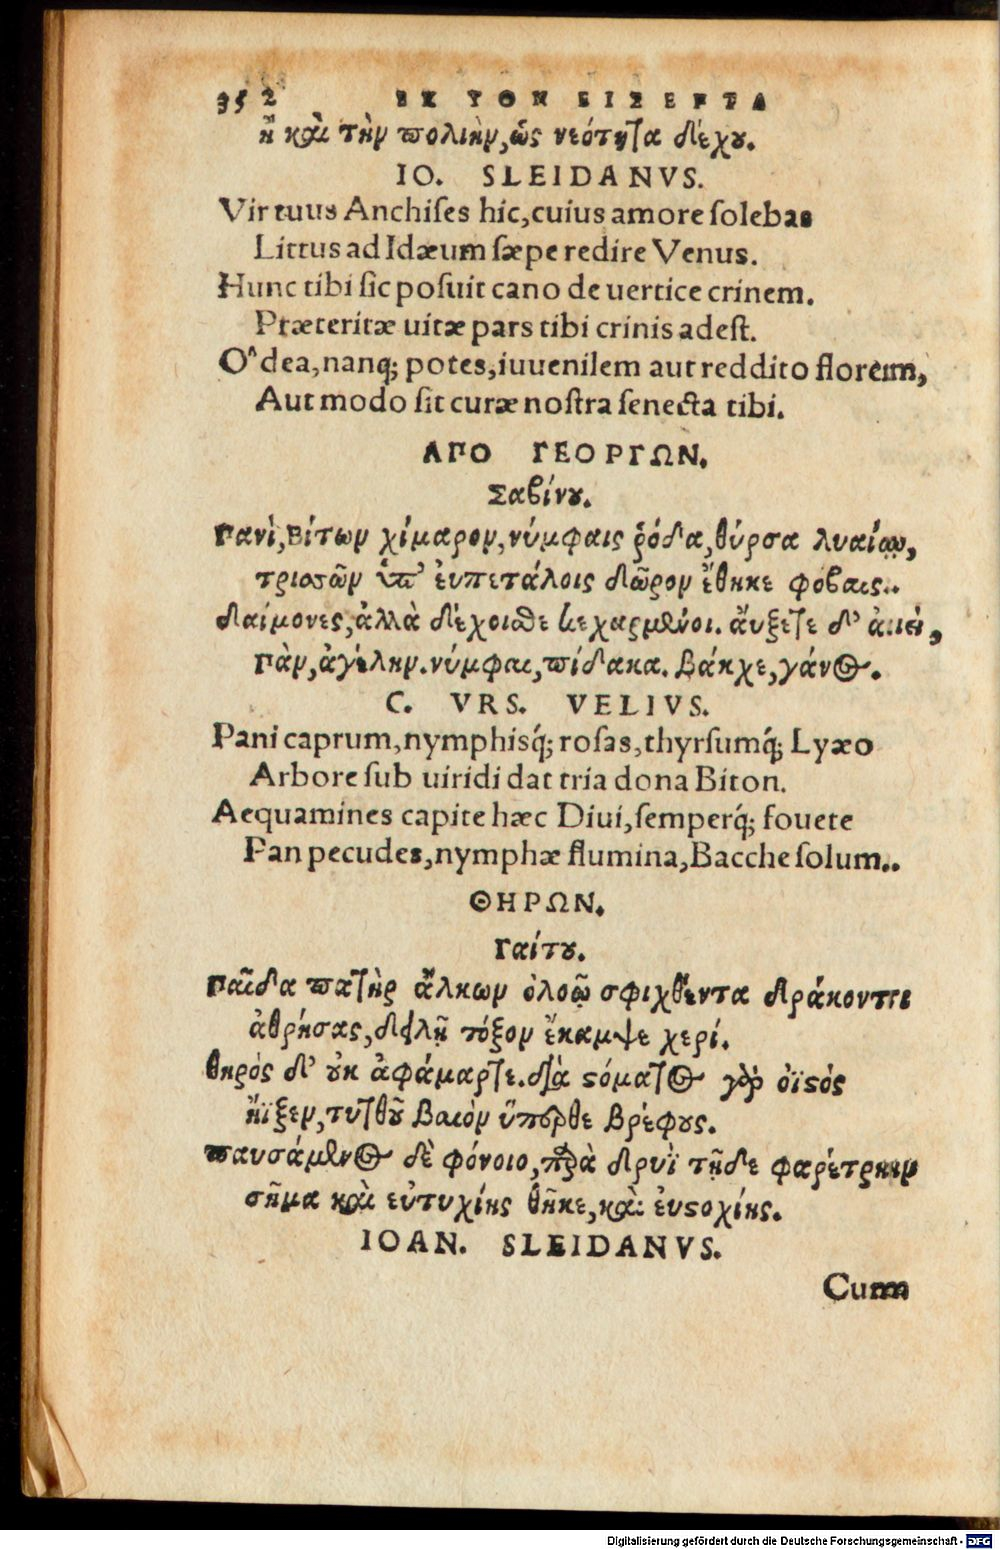 352 ΕΚ ΤΩΝ ΕΙΣ ΕΡΓΑ
ἢ καὶ τὴν πολιὴν, ὡς νεότητα δέχου.
IO. SLEIDANVS.
Virtuus Anchiſes hic, cuius amore ſolebas
Littus ad Idæum ſæpe redire Venus.
Hunc tibi ſic poſuit cano de uertice crinem.
Præteritæ uitæ pars tibi crinis adeſt.
O^ dea, nanq; potes, iuuenilem aut reddito florem,
Aut modo ſit curæ noſtra ſenecta tibi.
ΑΠΟ ΓΕΟΡΓΩΝ.
Σαβίνου.
Πανὶ, Βίτων χίμαρον, νύμφαις ῥόδα, θύρσα λυαίῳ,
τρισσῶν ὑπ' ἐυπετάλοις δῶρον ἔθηκε φόβαις..
δαίμονες, ἀλλὰ δέχοισθε κεχαρμένοι. ἄυξετε δ' ἀιεί,
Πὰν, ἀγέλην. νύμφαι, πίδακα. Βάκχε, γάνος.
C. VRS. VELIVS.
Pani caprum, nymphisq́; roſas, thyrſumq́; Lyæo
Arbore ſub uiridi dat tria dona Biton.
Aequamines capite hæc Diui, ſemperq́; fouete
Pan pecudes, nymphæ flumina, Bacche ſolum..
ΘΗΡΩΝ.
Γαίτου.
Παῖδα πατὴρ ἄλκων ὀλοῷ σφιχθέντα δράκοντι
ἀθρήσας, δειλῇ τόξον ἔκαμψε χερί.
θηρὸς δ' οὐκ ἀφάμαρτε. διὰ στόματος γὰρ ὀϊστός
ἤϊξεν, τυτθοῦ βαιὸν ὕπερθε βρέφους.
παυσάμενος δὲ φόνοιο, παρὰ δρυῒ τῇδε φαρέτρην
σῆμα καὶ εὐτυχίης θῆκε, καὶ ἐυστοχίης.
IOAN. SLEIDANVS.
Cum
Digitalisierung gefördert durch die Deutsche Forschungsgemeinschaft - DFG